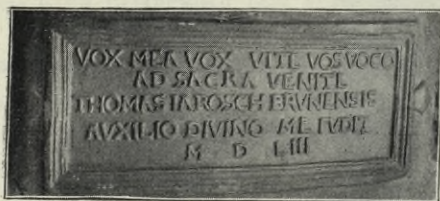 VOX MEA VOX VITE VOS VOCO
AD SACRA VENITE
THOMAS IAROSCH BRVNENSIS
AVXILIO DIVINO ME FVDIT
M D LIII